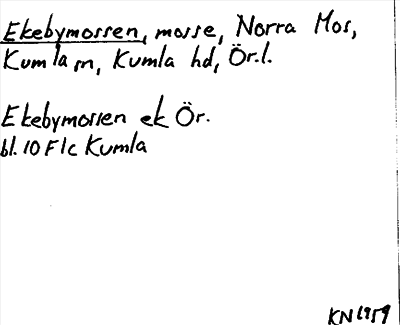 Ekebymossen, mosse, Norra Mos,
Kumla sn, Kumla hd, Ör.l.
Ekebymossen ek Ör.
bl. 10 F1c Kumla
KN 1959